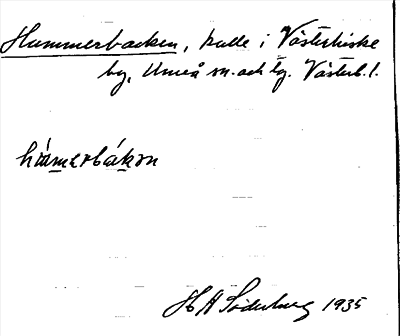 Hammerbacken, kulle i Västerhiske
by, Umeå sn. och tg. Västerb. l.
hámerbákon
H A Söderberg 1935